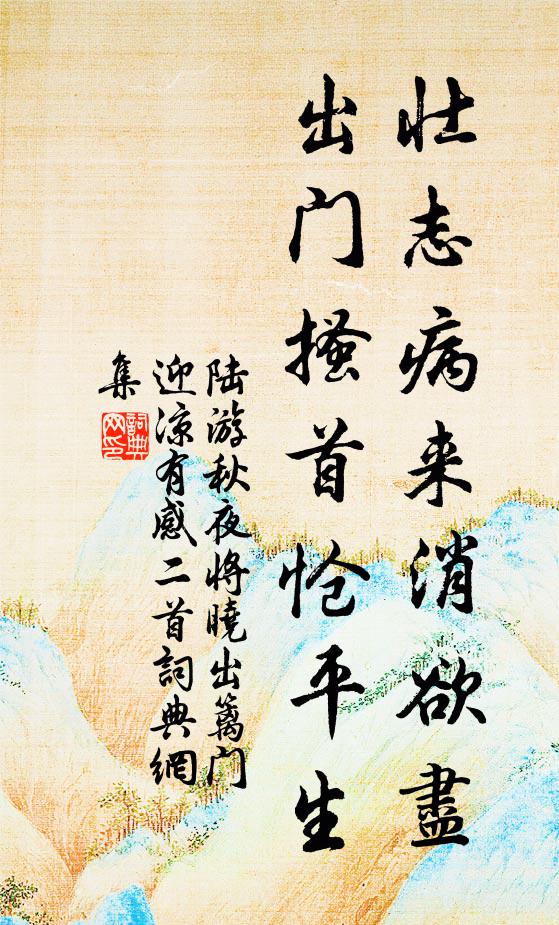 壮志病来消欲盡
出门搔首怆平生
陆游秋夜将曉出篱门
迎凉有感二首詞典網
集
詞典
网印